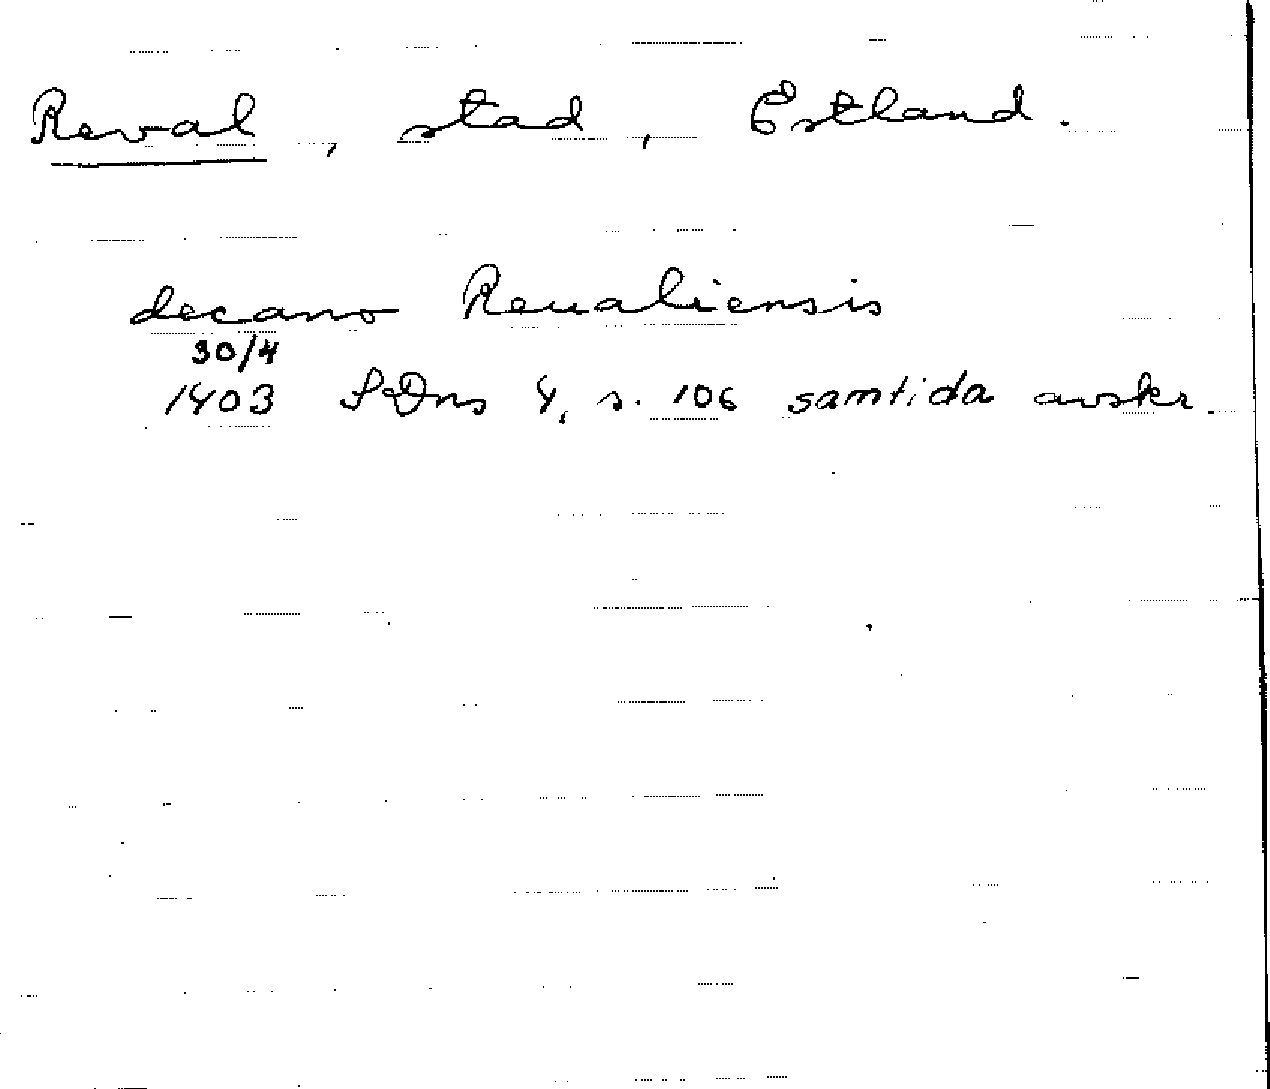 Reval, stad, Estland.
decano Reualiensis
30/4
1403 SDns 4, s. 106 samtida avskr.